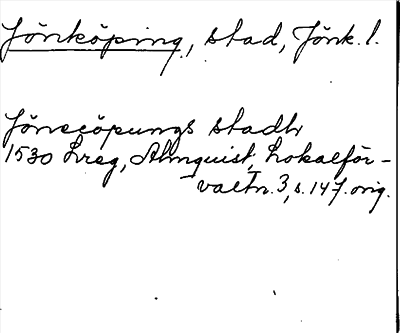 Jönköping, stad, Jönk. l.
Jönecöpungs stadh
1530 Lreg, Almquist, Lokalför-
valtn. 3, s. 147. orig.